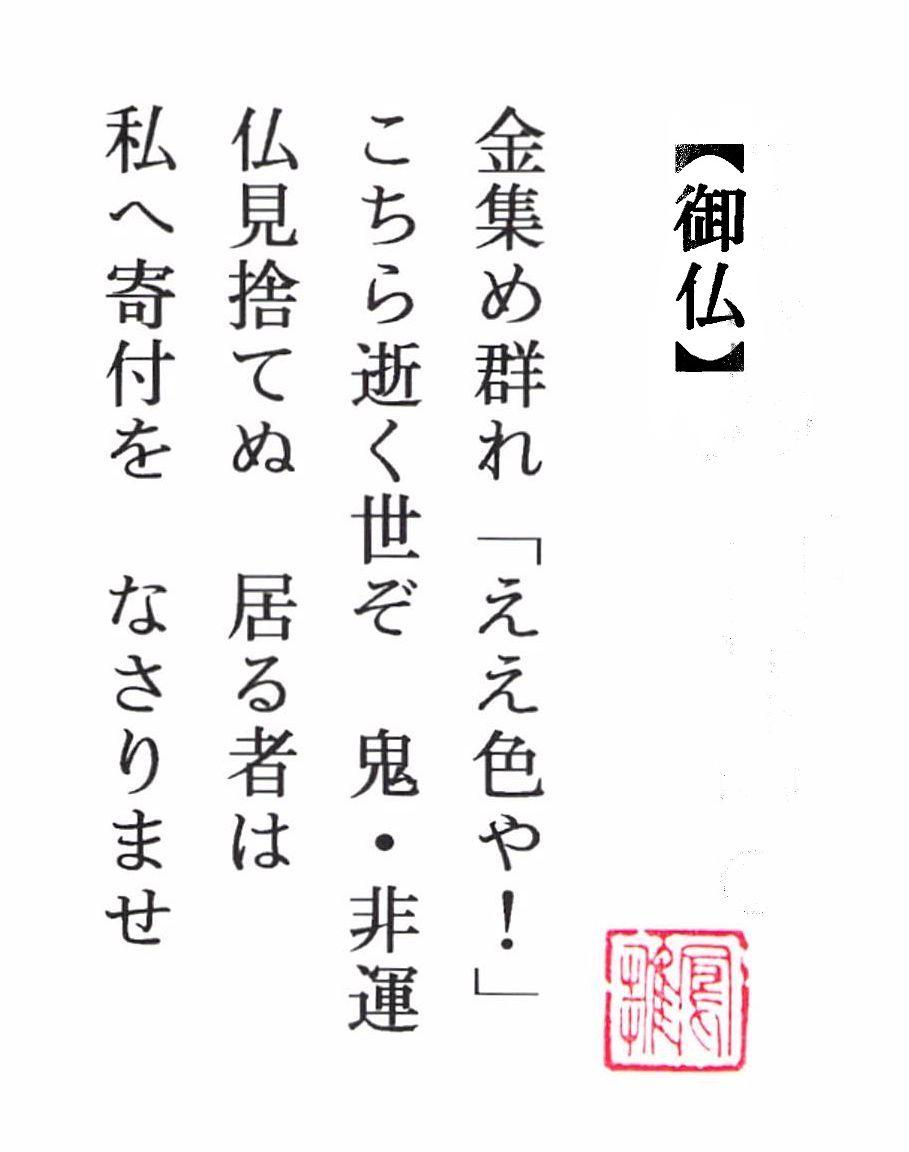 【御仏】
金集め群れ「ええ色や！」
こちら逝く世ぞ　鬼・非運
仏見捨てぬ　居る者は
私へ寄付を　なさりませ